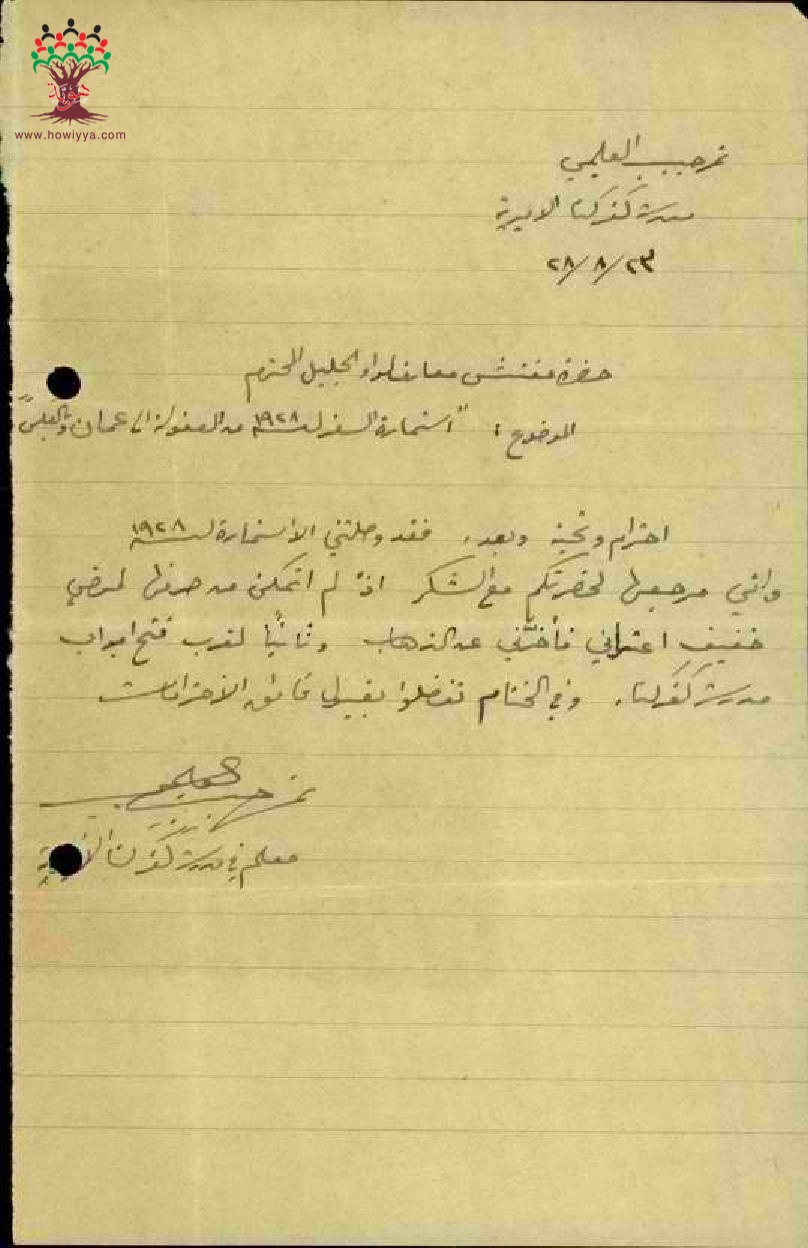 هوية
www.howiyya.com
نمر حبيب العليمي
مدرسة كفركنا الاميرية
٢٨/٨/٢٣
حضرة مفتش معارف لواء الجليل المحترم
الموضوع : "استمارة السفر لسنة ١٩٢٨ من العفولة الى عمان وبالعكس"
احترام وتحية وبعد، فقد وصلتني الاستمارة لسنة ١٩٢٨
واني مرجعها لحضرتكم مع الشكر اذ لم اتمكن من صرفها لمرض
خفيف اعتراني فأخرني عن الذهاب وثانياً لقرب فتح ابواب
مدرسة كفركنا. وفي الختام تفضلوا بقبول فائق الاحترامات
نمر حبيب العليمي
معلم في مدرسة كفركنا